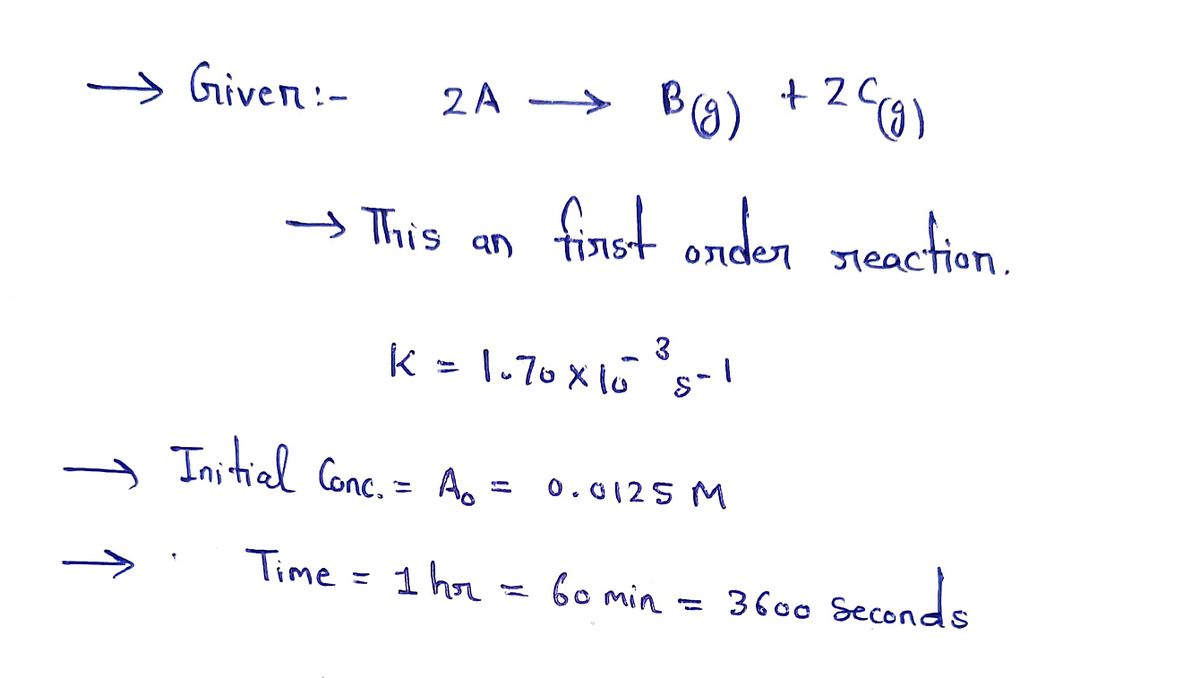 → Given:- 2A → B(g) + 2C(g)
→ This an first order reaction.
K = 1.70 × 10⁻³ s-1
→ Initial Conc. = A₀ = 0.0125 M
→ Time = 1 hr = 60 min = 3600 Seconds